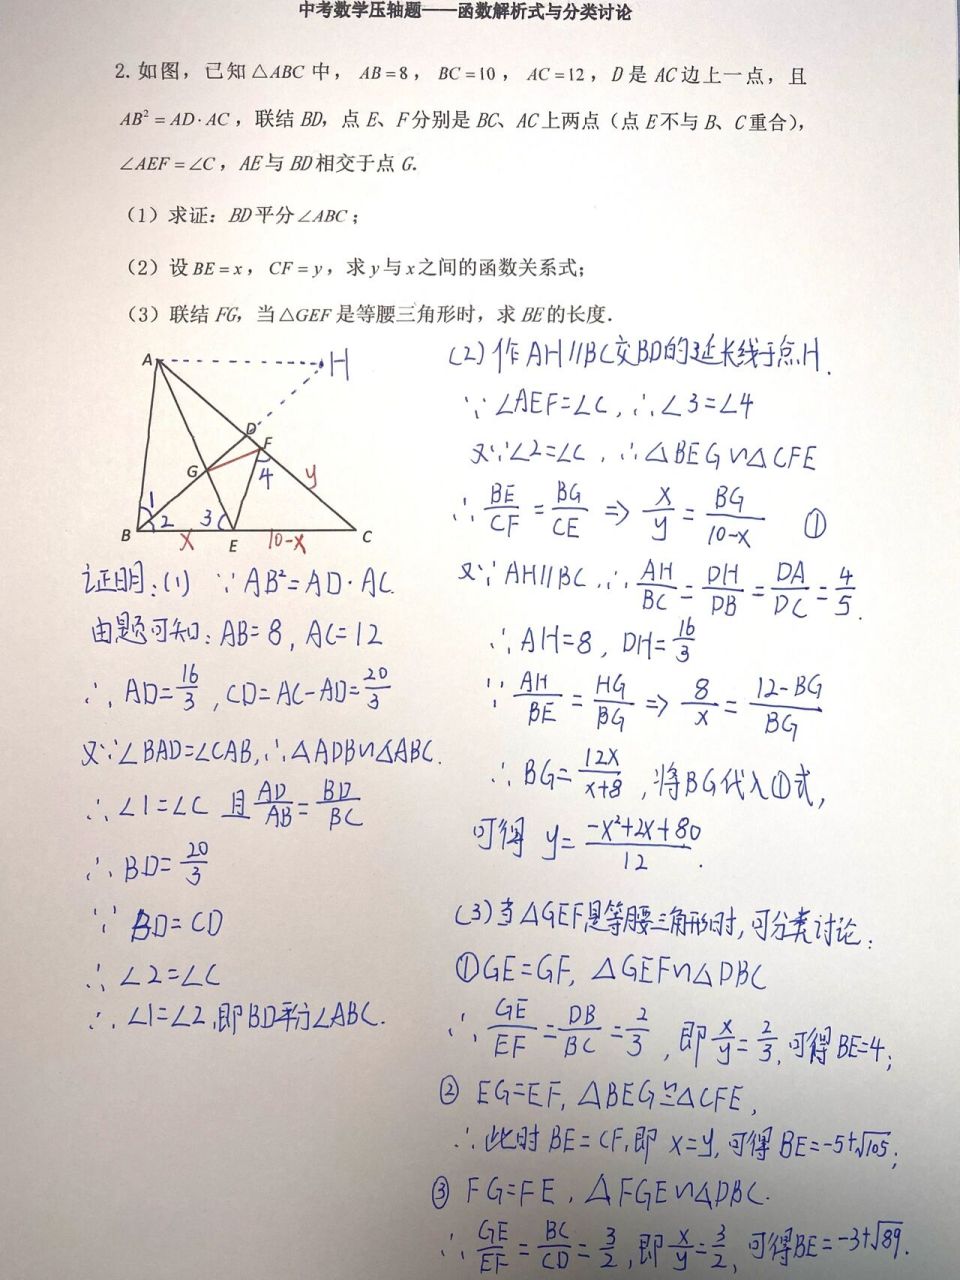 中考数学压轴题——函数解析式与分类讨论
2. 如图，已知△ABC 中，AB=8，BC=10，AC=12，D 是 AC 边上一点，且
AB²=AD·AC，联结 BD，点 E、F 分别是 BC、AC 上两点（点 E 不与 B、C 重合），
∠AEF=∠C，AE 与 BD 相交于点 G.
（1）求证：BD 平分∠ABC；
（2）设 BE=x，CF=y，求 y 与 x 之间的函数关系式；
（3）联结 FG，当△GEF 是等腰三角形时，求 BE 的长度.
A H
D F
G 4 y
1
B 2 3 E C
x 10-x
证明：(1) ∵AB²=AD·AC
由题可知：AB=8，AC=12
∴AD=16/3，CD=AC-AD=20/3
又∵∠BAD=∠CAB，∴△ADB∽△ABC.
∴∠1=∠C 且 AD/AB=BD/BC
∴BD=20/3
∵BD=CD
∴∠2=∠C
∴∠1=∠2，即BD平分∠ABC.
(2) 作AH∥BC交BD的延长线于点H.
∵∠AEF=∠C，∴∠3=∠4
又∵∠2=∠C，∴△BEG∽△CFE
∴BE/CF=BG/CE⇒x/y=BG/10-x ①
又∵AH∥BC，∴AH/BC=DH/DB=DA/DC=4/5.
∴AH=8，DH=16/3
∵AH/BE=HG/BG⇒8/x=12-BG/BG
∴BG=12x/x+8，将BG代入①式，
可得 y=-x²+2x+80/12.
(3) 当△GEF是等腰三角形时，可分类讨论：
①GE=GF，△GEF∽△DBC
∴GE/EF=DB/BC=2/3，即x/y=2/3，可得BE=4；
② EG=EF，△BEG≌△CFE，
∴此时BE=CF，即x=y，可得BE=-5+√105；
③ FG=FE，△FGE∽△DBC.
∴GE/EF=BC/CD=3/2，即x/y=3/2，可得BE=-3+√89.